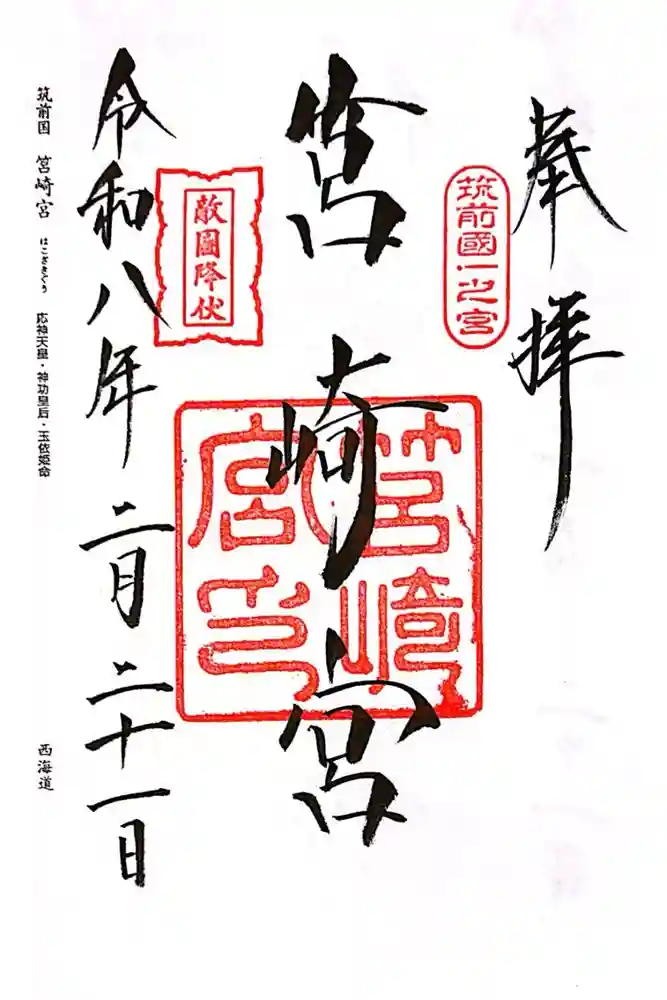 奉拝
筑前國一之宮
筥崎宮
筥崎宮印
敵國降伏
令和八年二月二十一日
筑前国 筥崎宮 はこざきぐう 応神天皇・神功皇后・玉依姫命 西海道